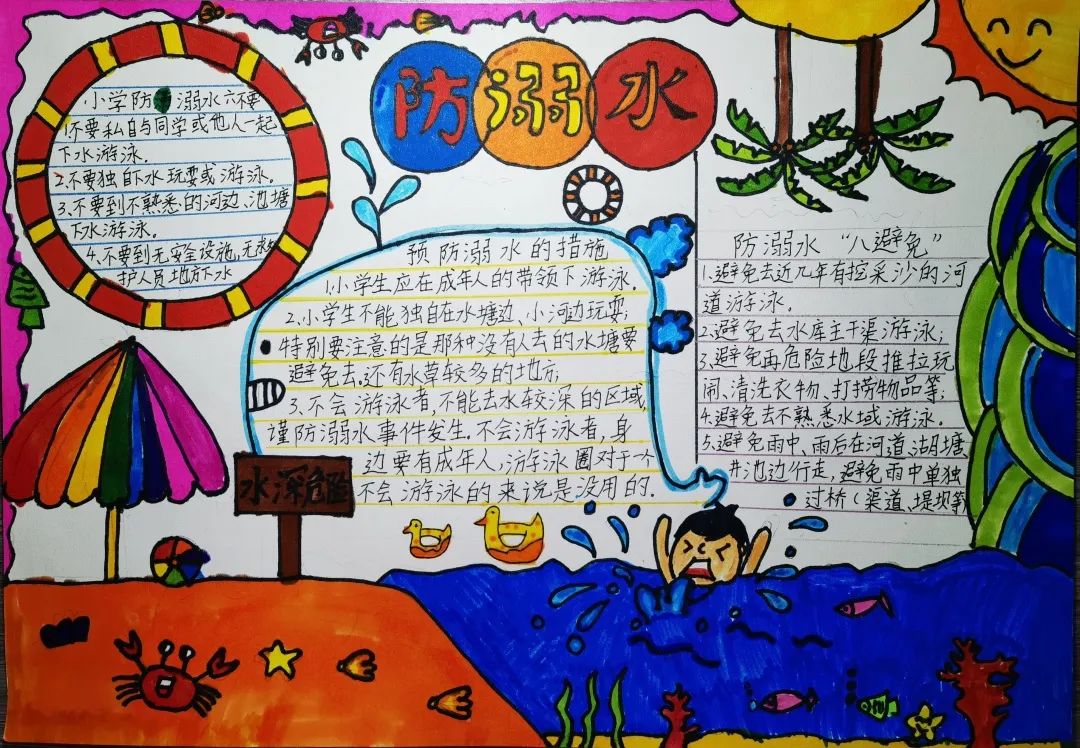 防溺水
小学防溺水六不要
1.不要私自与同学或他人一起
下水游泳.
2.不要独自下水玩耍或游泳.
3.不要到不熟悉的河边、池塘
下水游泳.
4.不要到无安全设施,无救
护人员地方下水
预防溺水的措施
1.小学生应在成年人的带领下游泳.
2.小学生不能独自在水塘边、小河边玩耍;
特别要注意的是那种没有人去的水塘要
避免去.还有水草较多的地方;
3.不会游泳者,不能去水较深的区域,
谨防溺水事件发生.不会游泳者,身
边要有成年人,游泳圈对于一个
不会游泳的来说是没用的.
水深危险
防溺水“八避免”
1.避免去近几年有挖采沙的河
道游泳.
2.避免去水库主干渠游泳;
3.避免再危险地段推拉玩
闹、清洗衣物、打捞物品等;
4.避免去不熟悉水域游泳.
5.避免雨中、雨后在河道、湖塘
井池边行走,避免雨中单独
过桥(渠道、堤坝等)